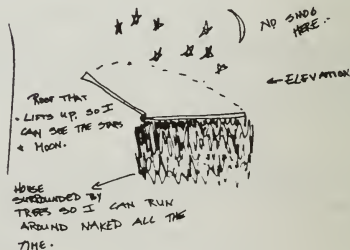 NO SMOG
HERE.-
← ELEVATION
ROOF THAT
LIFTS UP. SO I
CAN SEE THE STARS
& MOON.
HOUSE
SURROUNDED BY
TREES SO I CAN RUN
AROUND NAKED ALL THE
TIME.